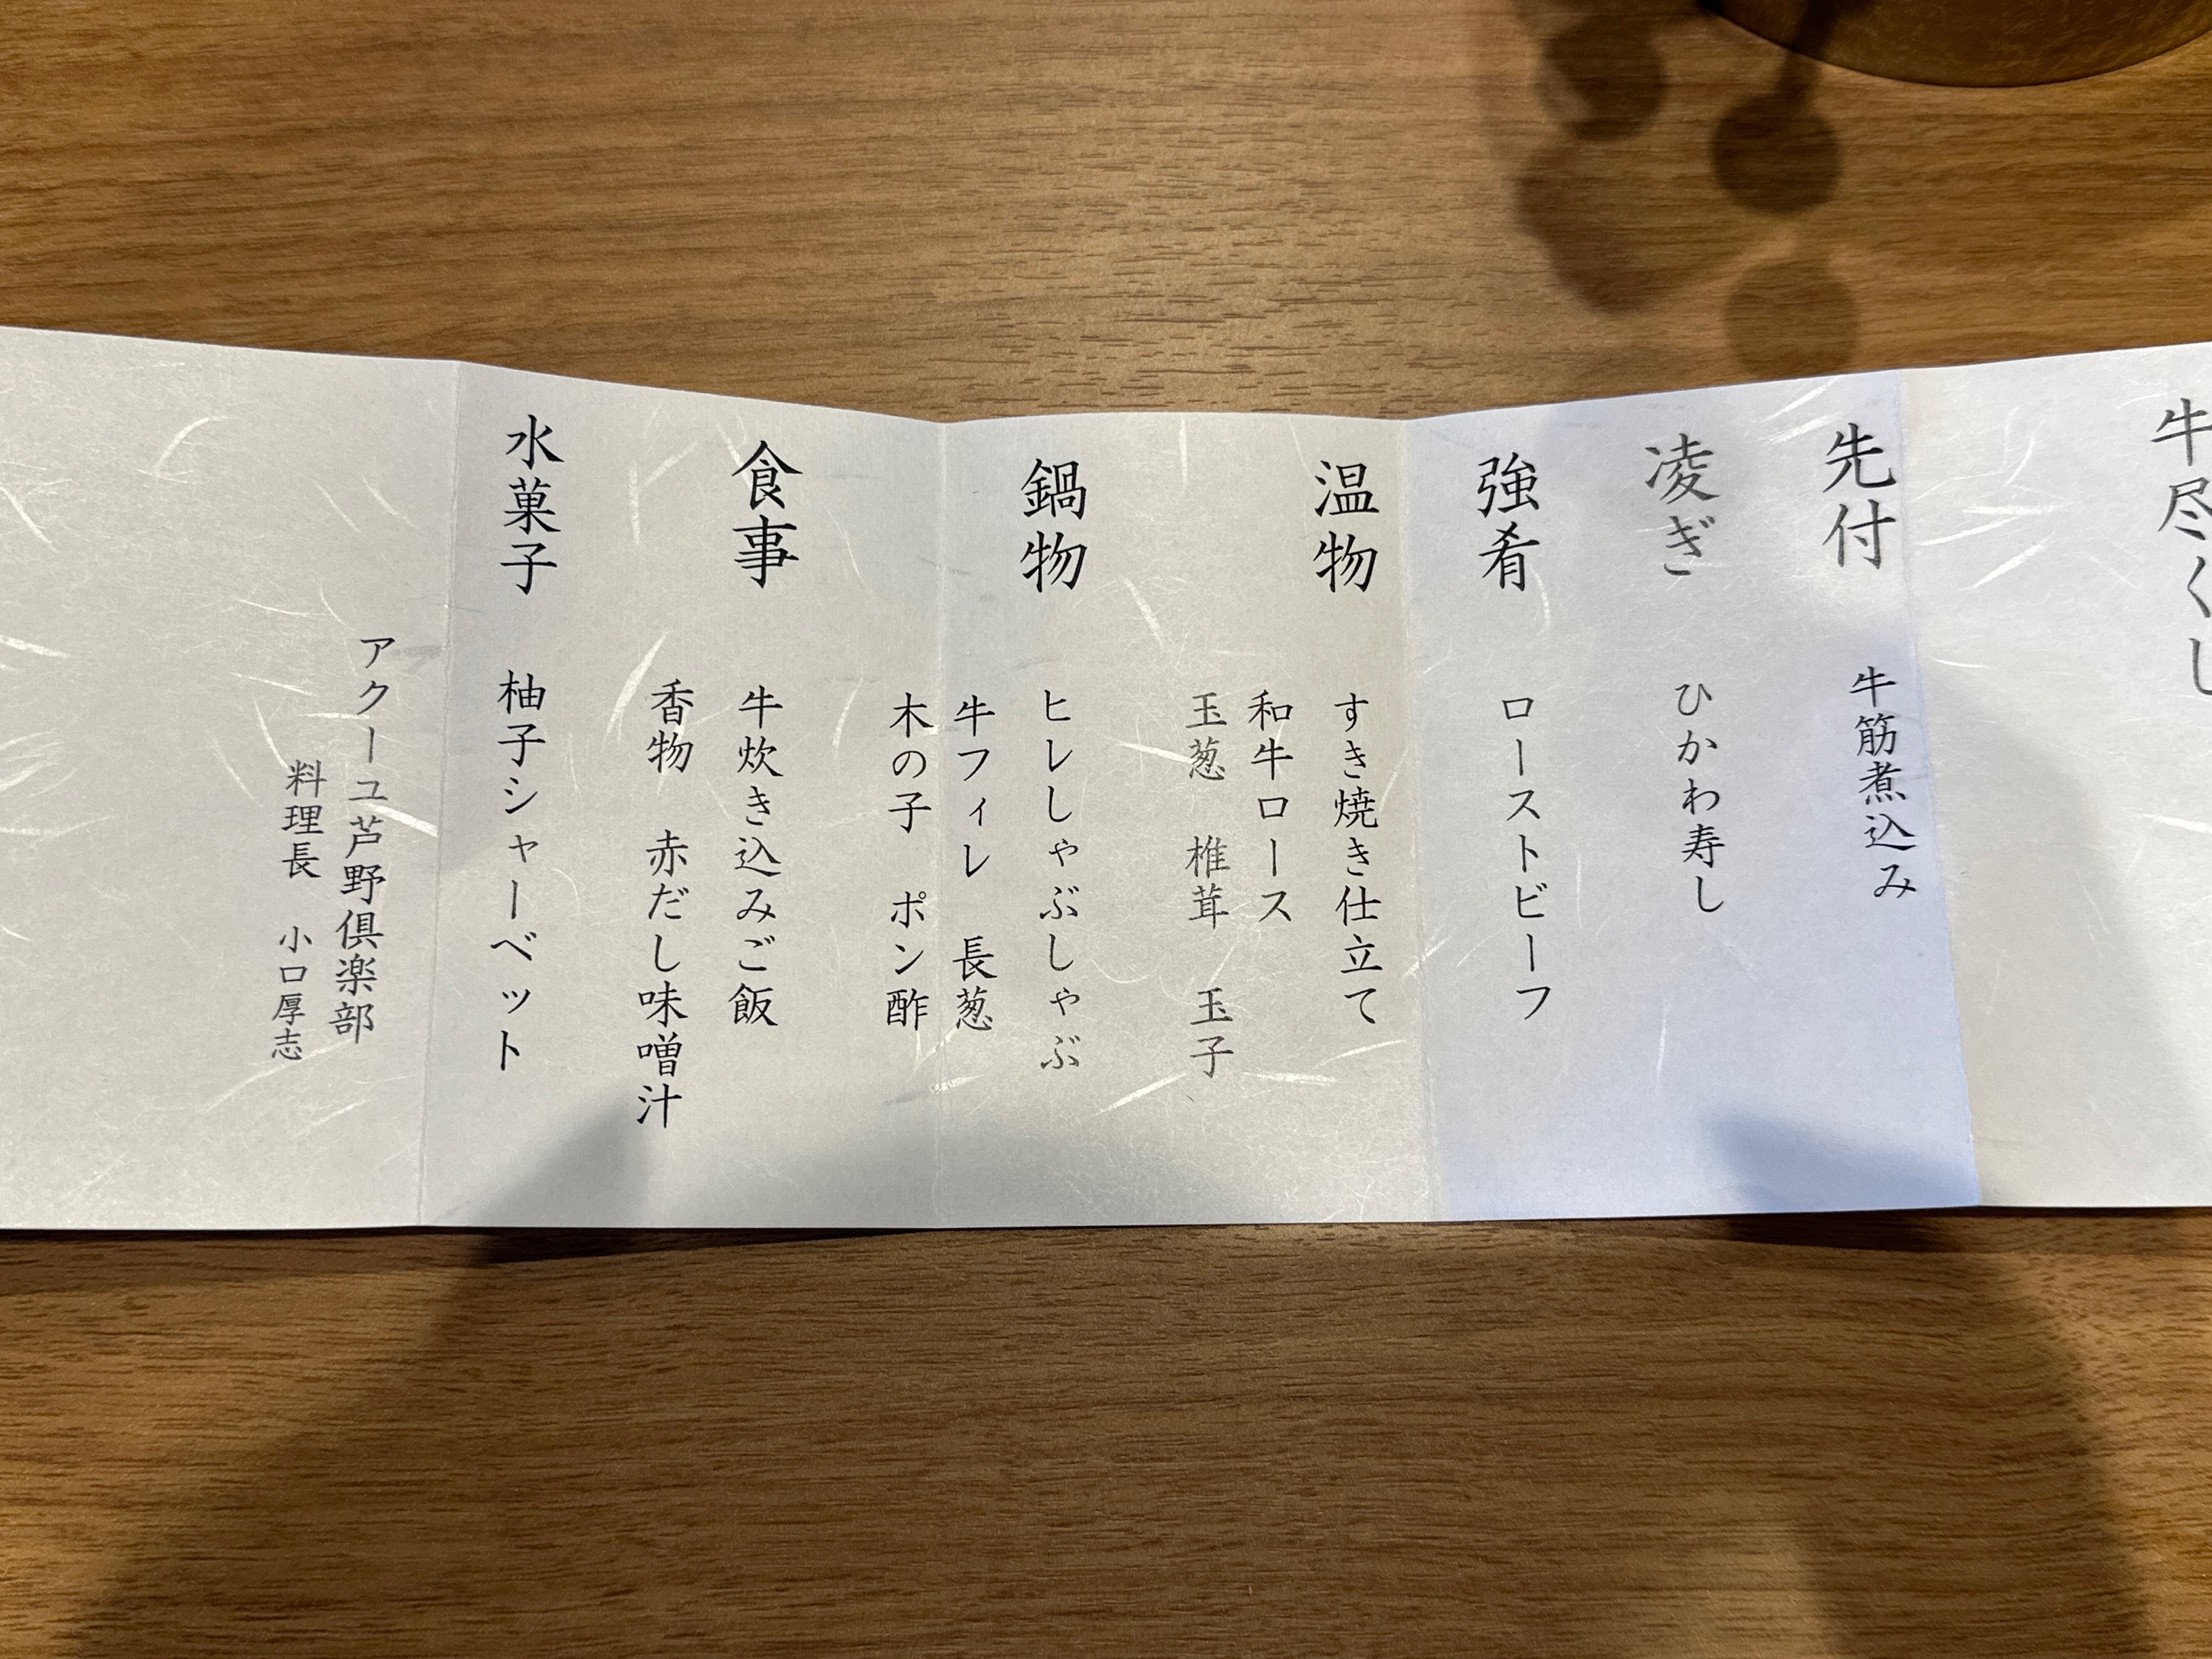 牛尽くし
先付
牛筋煮込み
凌ぎ
ひかわ寿し
強肴
ローストビーフ
温物
すき焼き仕立て
和牛ロース
玉葱 椎茸 玉子
鍋物
ヒレしゃぶしゃぶ
牛フィレ 長葱
木の子 ポン酢
食事
牛炊き込みご飯
香物 赤だし味噌汁
水菓子
柚子シャーベット
アクーユ芦野倶楽部
料理長 小口厚志